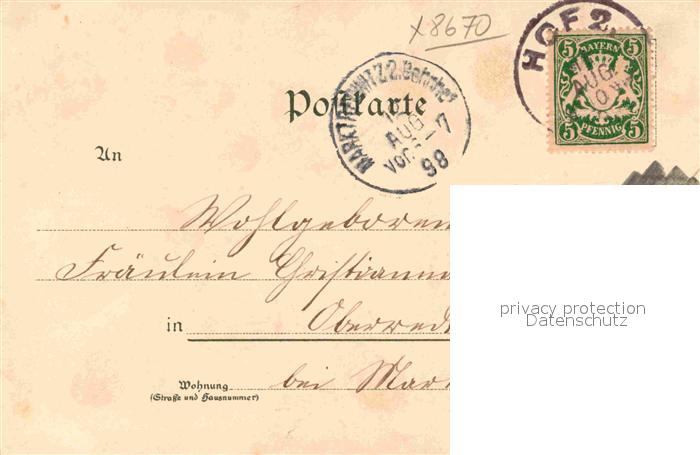 x8670
HOF 2
5 BAYERN 5
AUG
5 PFENNIG 5
2. Bahnhof
AUG
Vor. 7
98
Postkarte
An
Wohlgeboren
Fräulein
in
Wohnung bei
(Straße und Hausnummer)
privacy protection
Datenschutz